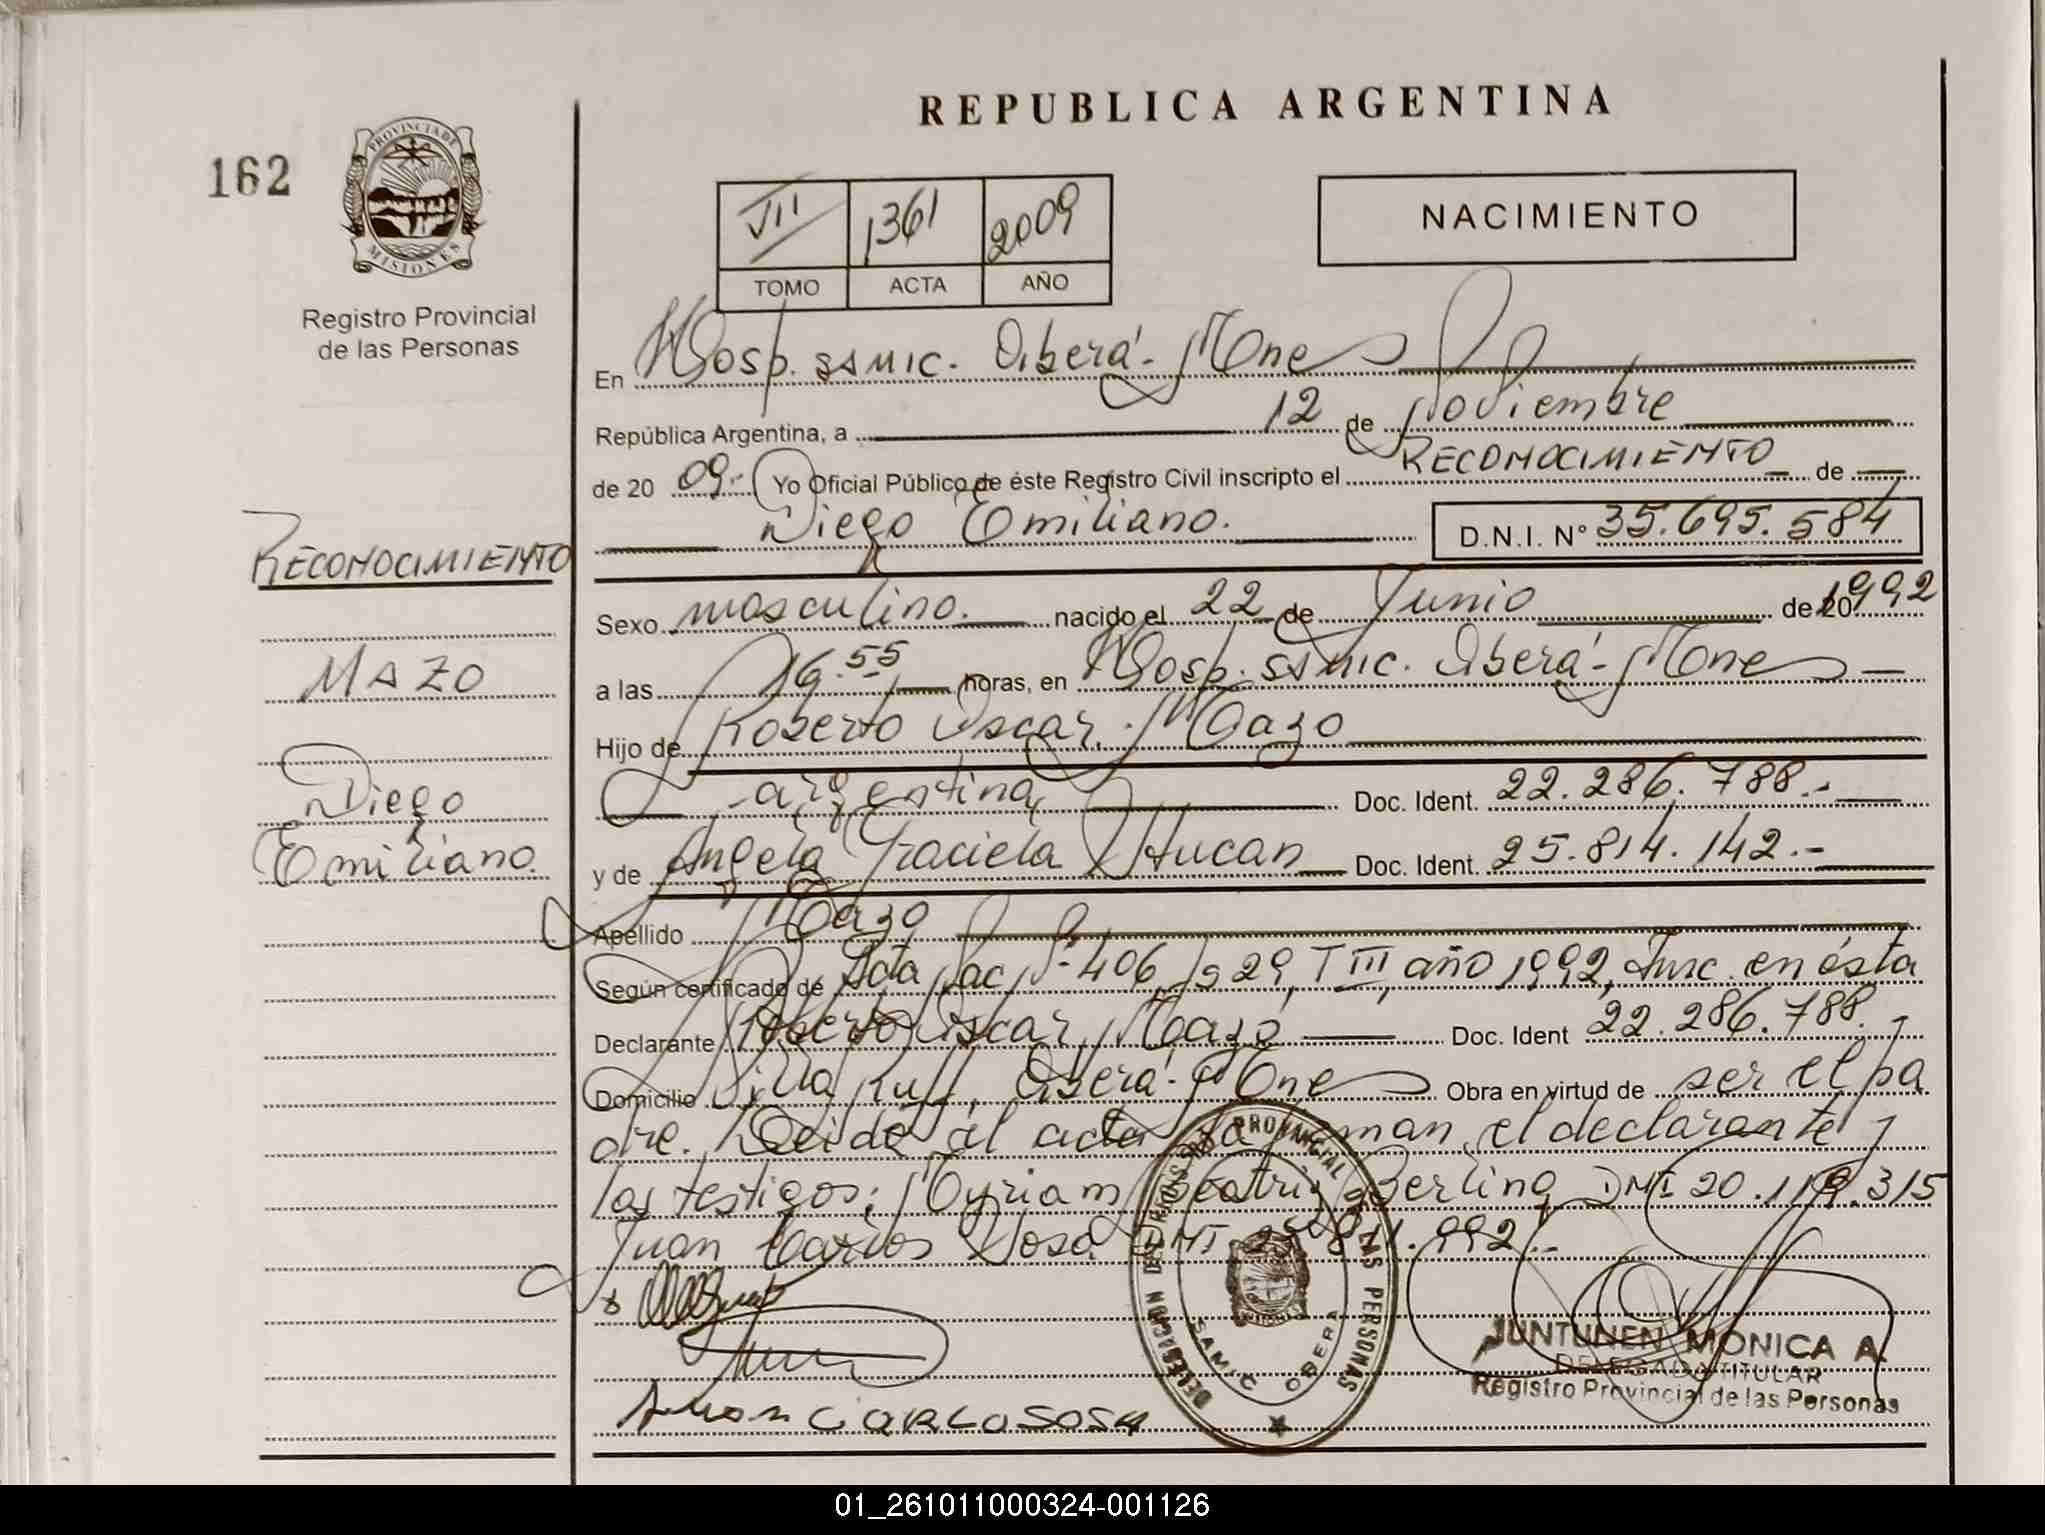 REPUBLICA ARGENTINA
162
PROVINCIA DE
MISIONES
Registro Provincial
de las Personas
VIII 1361 2009
TOMO ACTA AÑO
NACIMIENTO
En Hosp. SAMIC. Oberá - Mnes
República Argentina, a 12 de Noviembre
de 20 09.- Yo Oficial Público de éste Registro Civil inscripto el RECONOCIMIENTO de
Diego Emiliano. D.N.I. N° 35.695.584
RECONOCIMIENTO
MAZO
Diego
Emiliano.
Sexo masculino. nacido el 22 de Junio de 20 1992
a las 16.55 horas, en Hosp. SAMIC. Oberá - Mnes
Hijo de Roberto Oscar Mazo
- argentina, Doc. Ident. 22.286.788.-
y de Angela Graciela Doc. Ident. 25.814.142.-
Apellido Mazo
Según certificado de Acta Nac Nº 406, Fs 29, T III, año 1992, Insc. en ésta
Declarante Roberto Oscar Mazo Doc. Ident 22.286.788.-
Domicilio Villa Ruff, Oberá - Mnes Obra en virtud de ser el pa
dre. Leida el acta la firman, el declarante y
los testigos: Myriam Beatriz Berling DNI 20.119.315
Juan Carlos Sosa DNI .992.-
JUAN CARLOS SOSA
DELEGACION DEL REGISTRO PROVINCIAL DE LAS PERSONAS
SAMIC OBERA
JUNTUNEN MONICA A.
DELEGADA TITULAR
Registro Provincial de las Personas
01_261011000324-001126